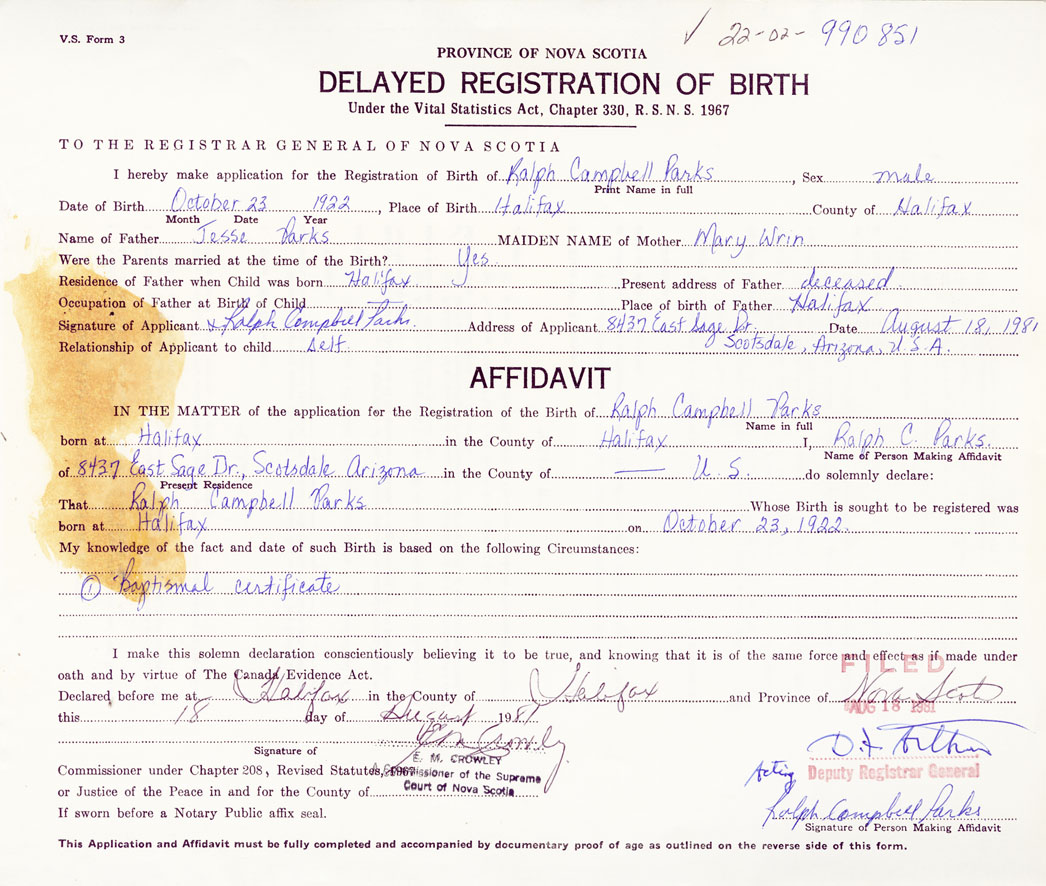 V.S. Form 3
✓ 22-02-990851
PROVINCE OF NOVA SCOTIA
DELAYED REGISTRATION OF BIRTH
Under the Vital Statistics Act, Chapter 330, R.S.N.S. 1967
TO THE REGISTRAR GENERAL OF NOVA SCOTIA
I hereby make application for the Registration of Birth of Ralph Campbell Parks, Sex male
Print Name in full
Date of Birth October 23 1922, Place of Birth Halifax County of Halifax
Month Date Year
Name of Father Jesse Parks MAIDEN NAME of Mother Mary Wrin
Were the Parents married at the time of the Birth? Yes
Residence of Father when Child was born Halifax Present address of Father deceased.
Occupation of Father at Birth of Child — Place of birth of Father Halifax
Signature of Applicant x Ralph Campbell Parks. Address of Applicant 8437 East Sage Dr. Date August 18, 1981
Relationship of Applicant to child Self Scotsdale, Arizona, U.S.A.
AFFIDAVIT
IN THE MATTER of the application for the Registration of the Birth of Ralph Campbell Parks
Name in full
born at Halifax in the County of Halifax I, Ralph C. Parks.
Name of Person Making Affidavit
of 8437 East Sage Dr., Scotsdale Arizona in the County of — U.S. do solemnly declare:
Present Residence
That Ralph Campbell Parks Whose Birth is sought to be registered was
born at Halifax on October 23, 1922.
My knowledge of the fact and date of such Birth is based on the following Circumstances:
① Baptismal certificate
I make this solemn declaration conscientiously believing it to be true, and knowing that it is of the same force and effect as if made under
oath and by virtue of The Canada Evidence Act.
FILED
Declared before me at Halifax in the County of Halifax and Province of Nova Scoti
AUG 18 1981
this 18 day of August 1981
E M Crowley
Signature of
E. M. CROWLEY
Commissioner under Chapter 208, Revised Statutes, 1967
A Commissioner of the Supreme
Court of Nova Scotia
or Justice of the Peace in and for the County of
If sworn before a Notary Public affix seal.
Acting Deputy Registrar General
Ralph Campbell Parks
Signature of Person Making Affidavit
This Application and Affidavit must be fully completed and accompanied by documentary proof of age as outlined on the reverse side of this form.